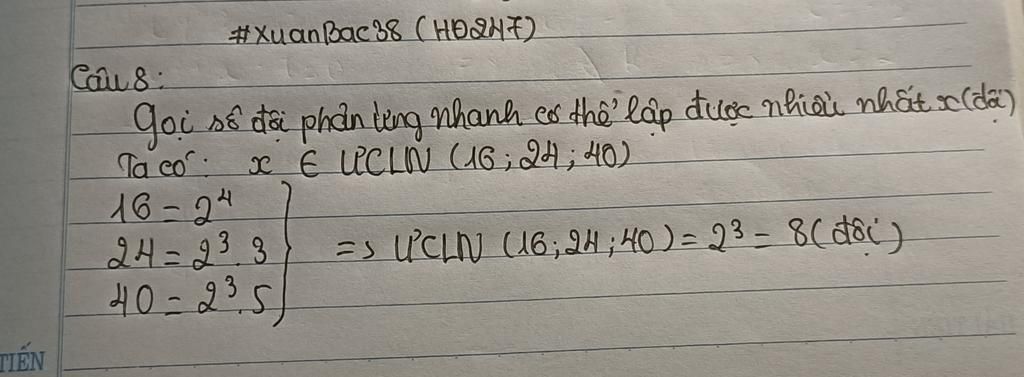 #XuanBac38 (HĐ247)
Câu 8:
Gọi số đội phản ứng nhanh có thể lập được nhiều nhất x(đội)
Ta có: x ∈ ƯCLN (16; 24; 40)
16 = 2⁴
24 = 2³.3 => ƯCLN (16; 24; 40) = 2³ = 8(đội)
40 = 2³.5
TIẾN